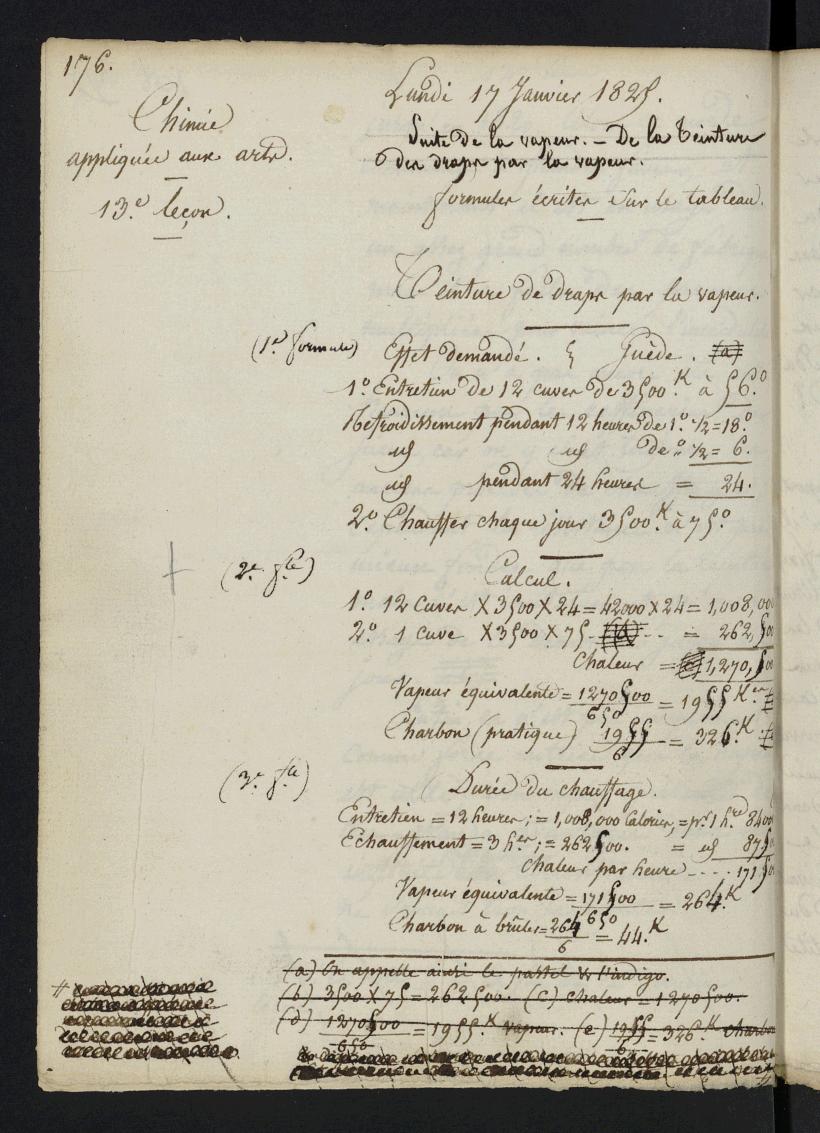 176.
Chimie
appliquée aux arts.
13.e leçon.
Lundi 17 Janvier 1825.
Suite de la vapeur. - De la Teinture
des draps par la vapeur.
formules écrites sur le tableau.
Teinture de draps par la vapeur.
(1.e formule) Effet demandé. Guède. (a)
1.o Entretien de 12 cuves de 3500.K à 56.o
Refroidissement pendant 12 heures de 1.o 1/2 = 18.o
id id de o 1/2 = 6.
id pendant 24 heures = 24.
2.o Chauffer chaque jour 3500.K à 75.o
(2.e f.le) Calcul.
1.o 12 Cuves X 3500 X 24 = 42000 X 24 = 1,008,000
2.o 1 cuve X 3500 X 75 = 262,500
Chaleur = 1,270,500
Vapeur équivalente = 1270500/650 = 1955 K.es
Charbon (pratique) 1955/6 = 326.K
(3.e f.le) Durée du chauffage.
Entretien = 12 heures; = 1,008,000 Calories, = p.r 1 h.re 8400
Echauffement = 3 h.es; = 262500. = id 875
Chaleur par heure .... 1715
Vapeur équivalente = 171500/650 = 264.K
Charbon à brûler = 264/6 = 44.K
(a) On appelle ainsi le pastel et l'indigo.
(b) 3500 X 75 = 262500. (c) Chaleur = 1270500.
(d) 1270500/650 = 1955.K vapeur. (e) 1955/6 = 326.K charbon